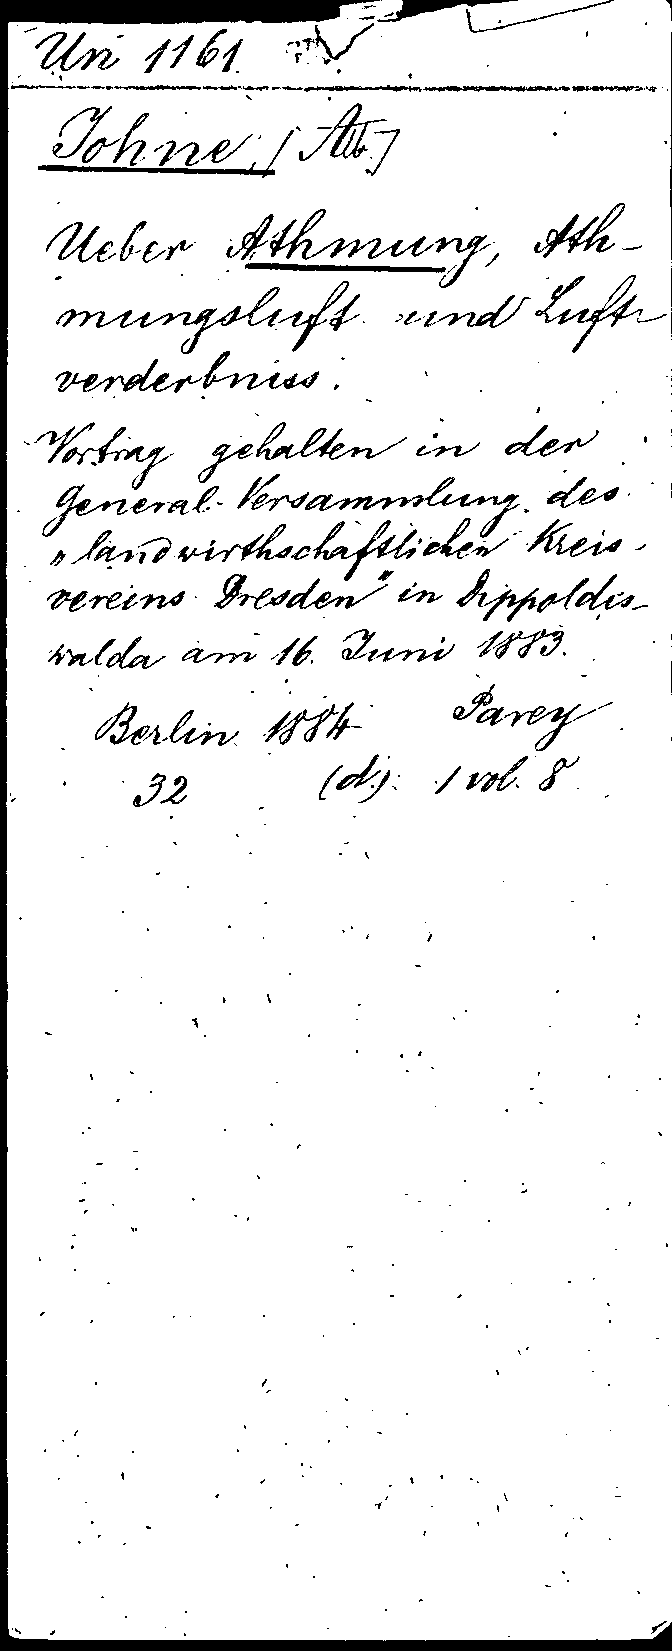 Uri 1161
Johne, [Alb.]
Ueber Athmung, Ath-
mungsluft und Luft-
verderbniss.
Vortrag gehalten in der
General-Versammlung des
„landwirthschaftlichen Kreis-
vereins Dresden" in Dippoldis-
walda am 16. Juni 1883.
Berlin 1884 Parey
32 (d.). 1 vol. 8